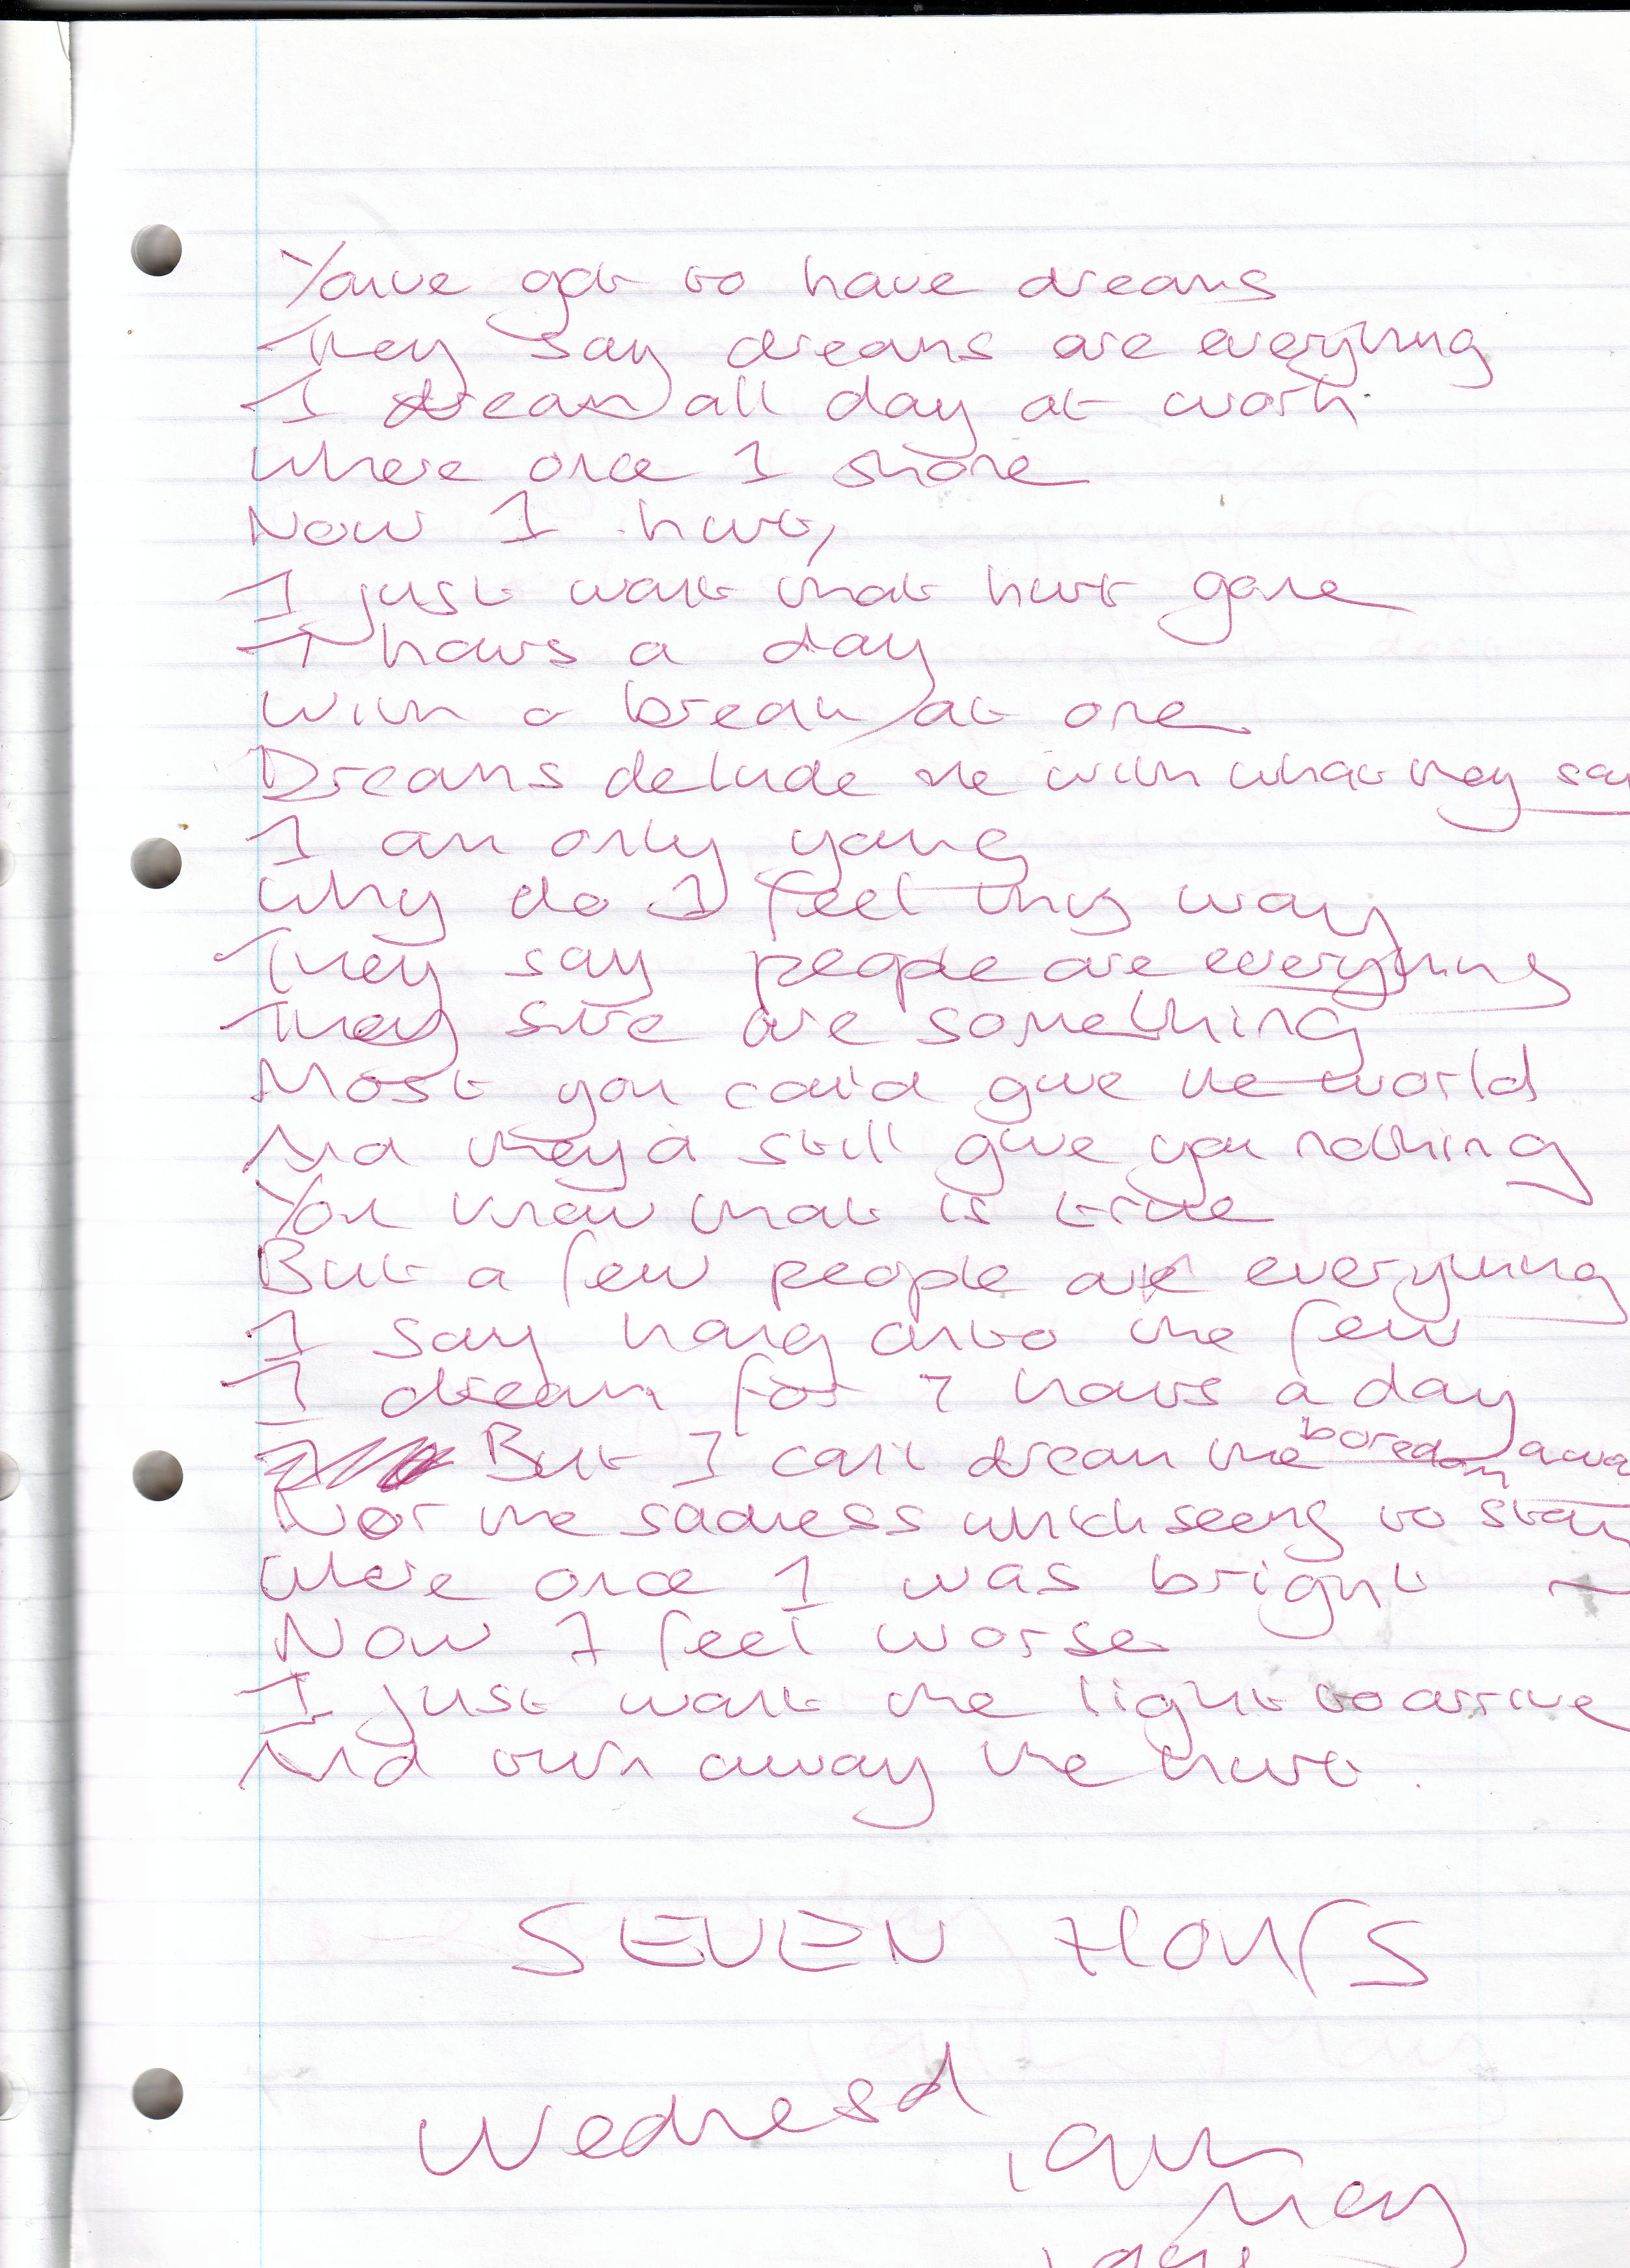 Youve got to have dreams
They say dreams are everything
I dream all day at work
Where once I shone
Now I hurt,
I just want that hurt gone
7 hours a day
With a break at one
Dreams delude me with what they say
I am only young
Why do I feel this way
They say people are everything
They sure are something
Most you could give the world
And they'd still give you nothing
You know that is true
But a few people are everything
I say hang onto the few
I dream for 7 hours a day
But I can't dream the boredom awa
Nor the sadness which seems to stay
Where once I was bright
Now I feel worse
I just want the light to arrive
And turn away the hurt.
SEVEN HOURS
Wednesd
May